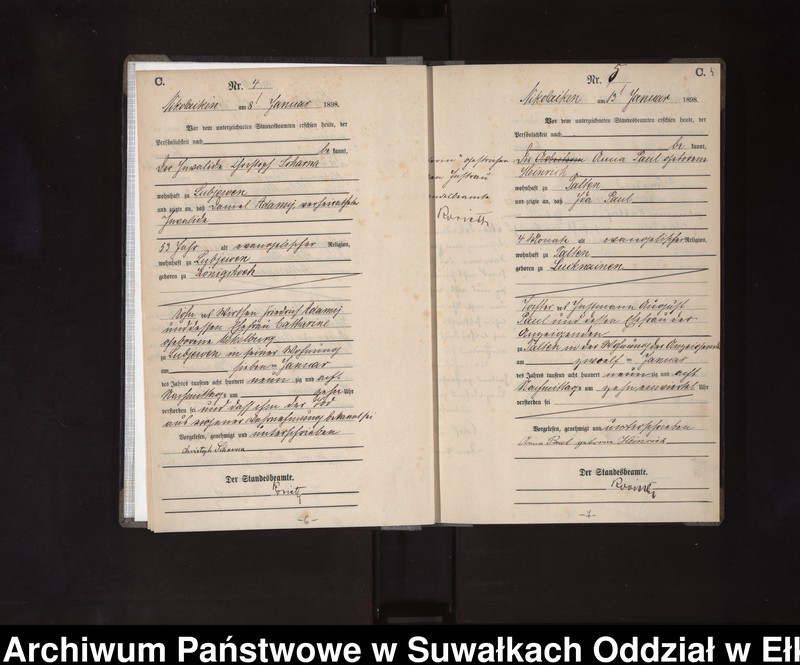 C.
Nr. 4
Nikolaiken am 8ᵗ Januar 1898.
Vor dem unterzeichneten Standesbeamten erschien heute, der
Persönlichkeit nach
be kannt,
der Invalide Christoph Scharna
wohnhaft zu Lubjewen
und zeigte an, daß Daniel Adamy, verheiratheter
Invalide
53 Jahr alt evangelischer Religion,
wohnhaft zu Lubjewen
geboren zu
Sohn des Wirthen Friedrich Adamy
und dessen Ehefrau Catharine
geborene
zu Lubjewen in seiner Wohnung
am sieben = Januar
des Jahres tausend acht hundert neun zig und acht
Nachmittags um zehn Uhr
verstorben sei und daß ihm der Tod
aus eigener Wahrnehmung bekannt sei
Vorgelesen, genehmigt und unterschrieben
Christoph Scharna
Der Standesbeamte.
-6-
C.
Nr. 5
Nikolaiken am 13ᵗ Januar 1898.
Vor dem unterzeichneten Standesbeamten erschien heute, der
Persönlichkeit nach
be kannt,
Die Anna Paul geborene
Heinrich
wohnhaft zu Talten
und zeigte an, daß Ida Paul
4 Monate a evangelischer Religion,
wohnhaft zu Talten
geboren zu Lucknainen
Tochter des Instmann August
Paul und dessen Ehefrau der
Anzeigenden
zu Talten in der Wohnung der Anzeigenden
am zwoelf = Januar
des Jahres tausend acht hundert neun zig und acht
Nachmittags um zehn einviertel Uhr
verstorben sei
Vorgelesen, genehmigt und unterschrieben
Anna Paul geborene Heinrich
Der Standesbeamte.
-7-
Archiwum Państwowe w Suwałkach Oddział w Ełk